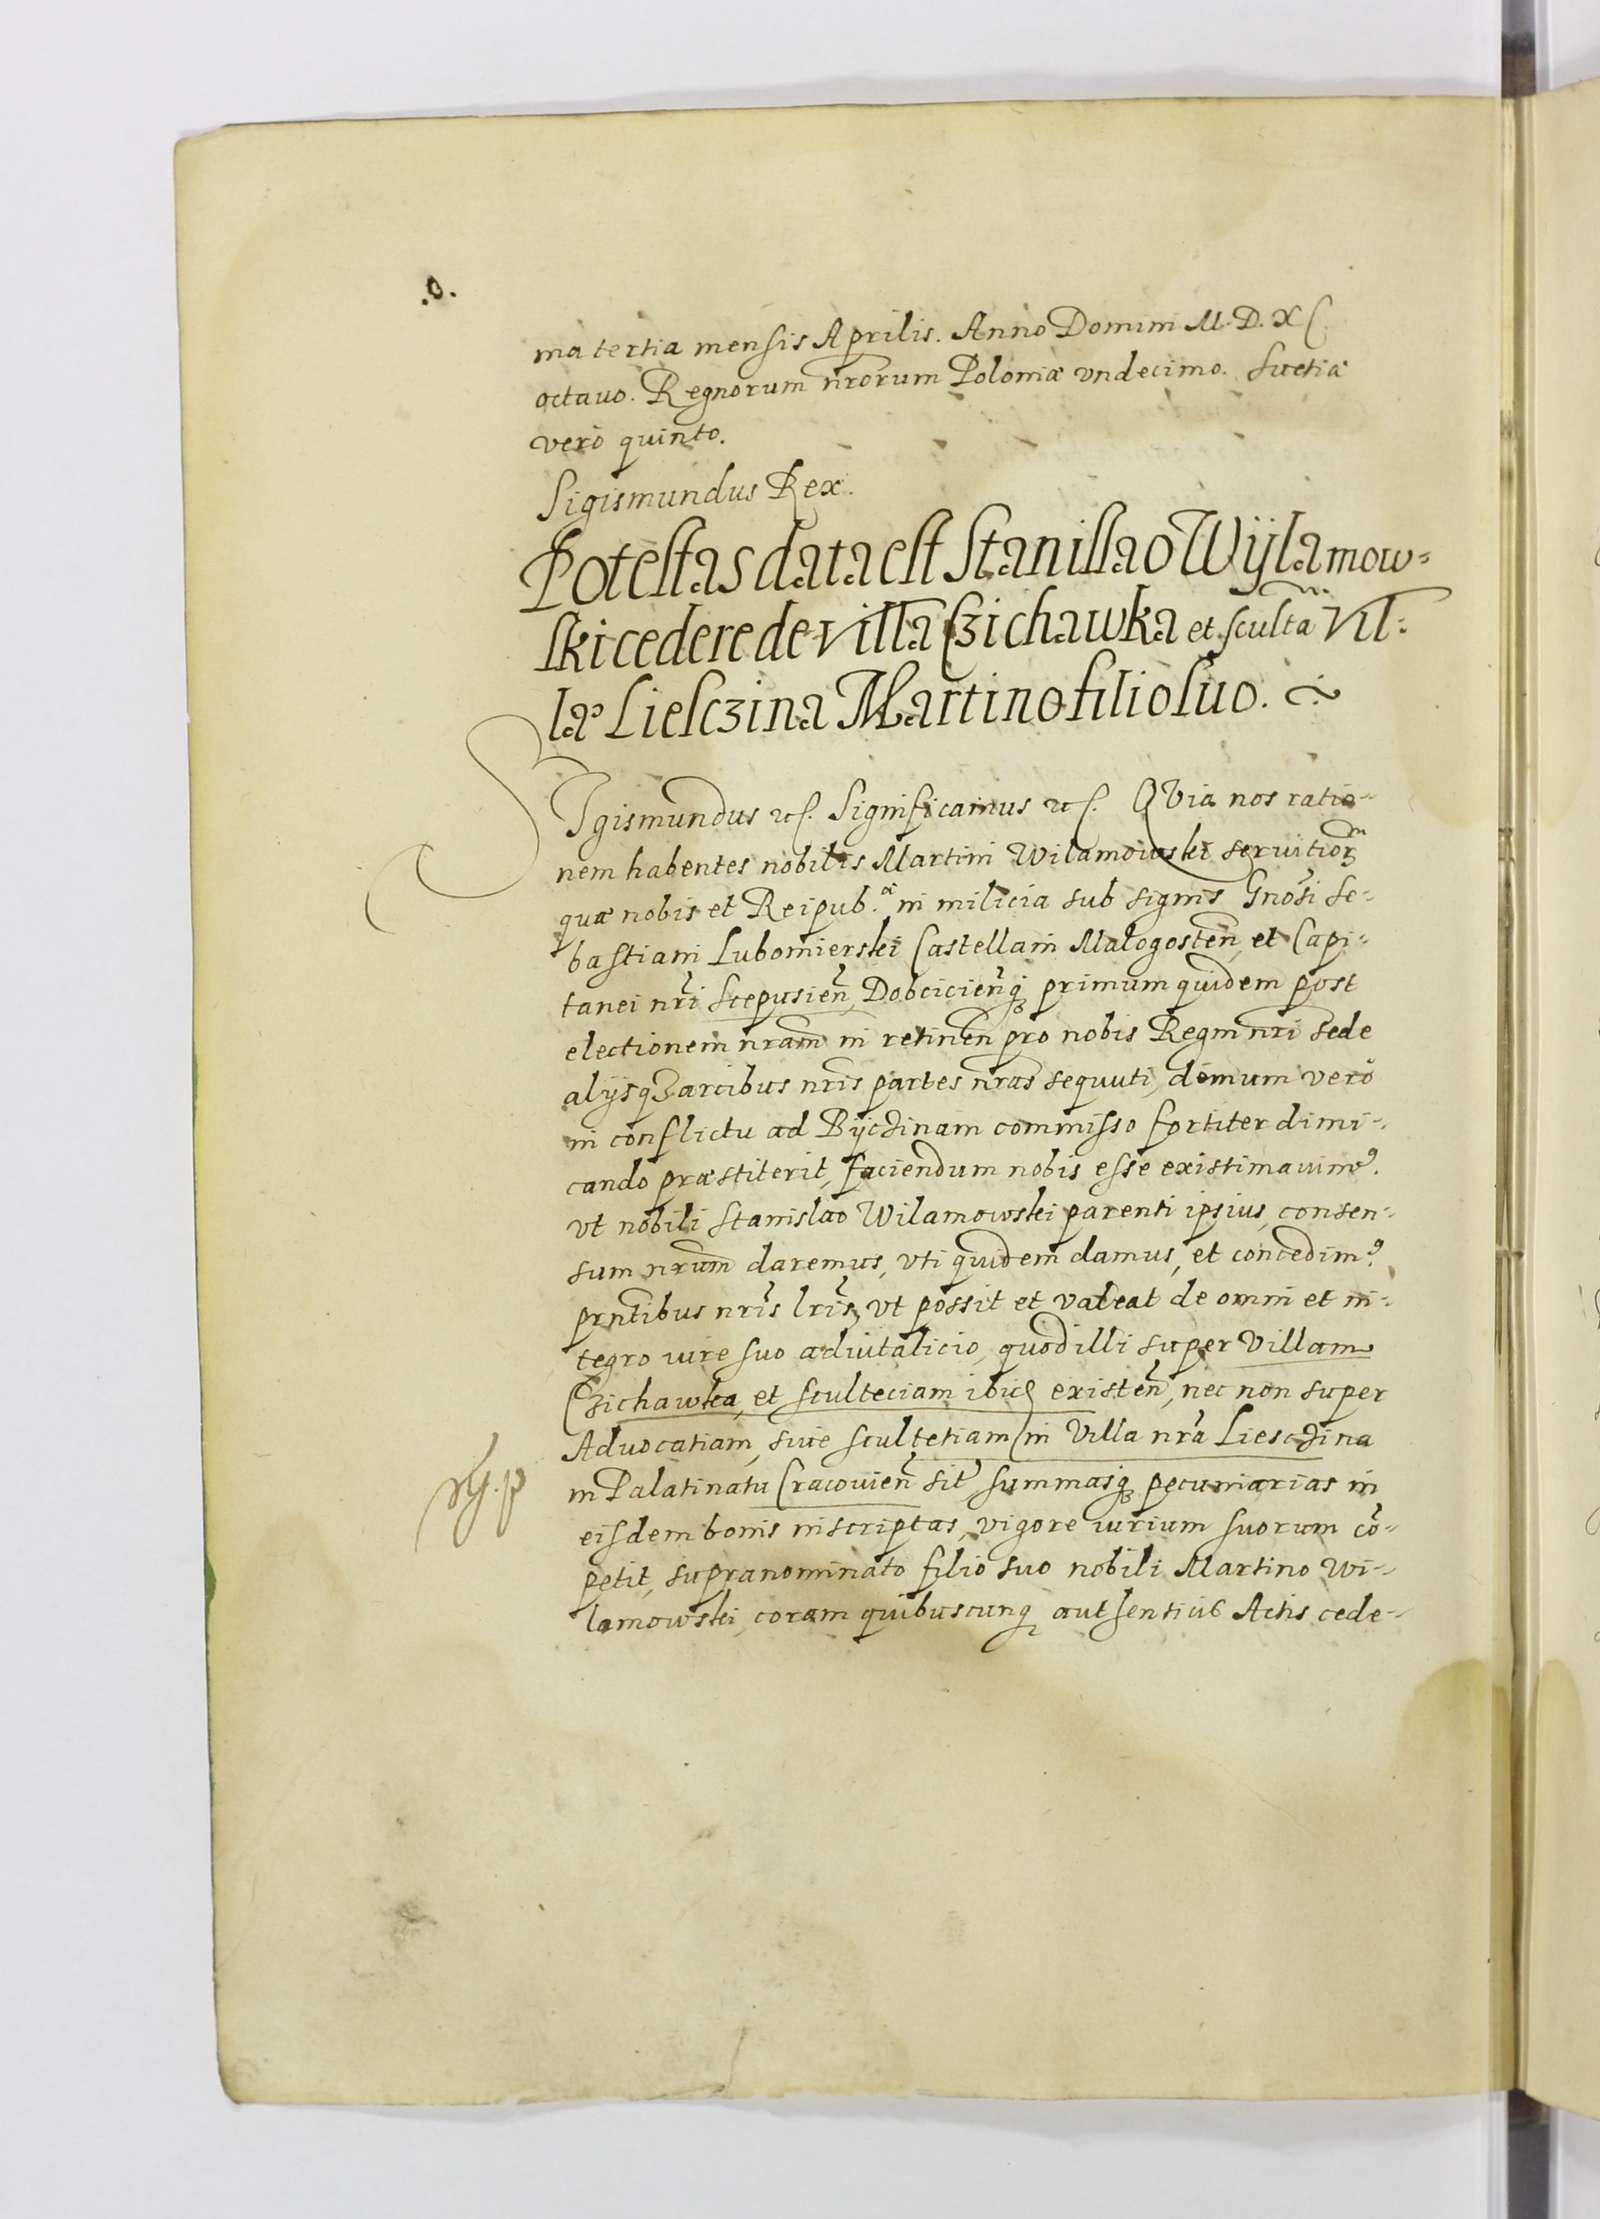 .o.
ma tertia mensis Aprilis. Anno Domini M.D.XC
octauo. Regnorum nrorum Poloniæ vndecimo. Suetiæ
verò quinto.
Sigismundus Rex.
Potestas data est Stanislao Wÿlamow=
ski cedere de villa Czichawka et scultã vil=
læ Liesczina Martino filio suo.
SIgismundus etc. Significamus etc. QVia nos ratio-
nem habentes nobilis Martini Wilamowski seruitiorũ
quæ nobis et Reipub.æ in milicia sub signis Gnosi Se-
bastiani Lubomierski Castellani Malogosten, et Capi-
tanei nri Scepusien, Dobcicienq₃ primum quidem post
electionem nram in retinen pro nobis Regni nri sede
alijsq₃ arcibus nris partes nras sequuti, demum verò
in conflictu ad Bÿczinam commisso fortiter dimi-
cando præstiterit, faciendum nobis esse existimauimꝰ.
vt nobili Stanislao Wilamowski parenti ipsius, consen-
sum nrum daremus, vti quidem damus, et concedimꝰ
prntibus nris lris, vt possit et valeat de omni et in-
tegro iure suo aduitalicio, quod illi super Villam
Czichawka, et sculteciam ibid existen, nec non super
Aduocatiam, siue scultetiam in Villa nra Liesczina
in Palatinatu Cracouien sit summasq₃ pecuniarias in
eisdem bonis inscriptas, vigore iurium suorum cõ-
petit, supranominato filio suo nobili Martino Wi-
lamowski, coram quibuscunq₃ authenticis Actis cede-